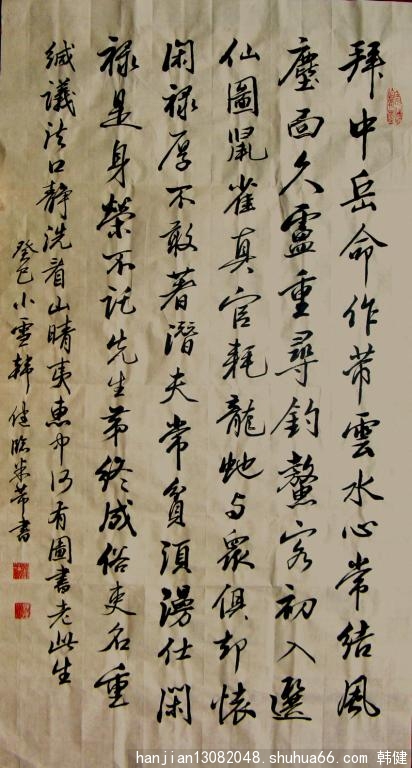 拜中岳命作芾雲水心常結風
塵面久盧重尋釣鰲客初入選
仙圖鼠雀真官耗龍虵与眾俱却懷
閑禄厚不敢著潛夫常貧須漫仕閑
禄是身榮不託先生苐終成俗吏名重
緘議法口静洗看山晴夷惠中何有圖書老此生
癸巳小雪韩健臨米芾書
hanjian13082048.shuhua66.com 韩健